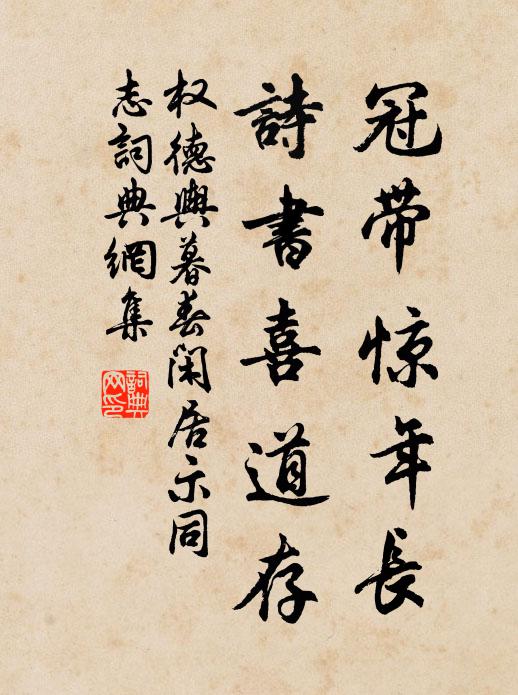 冠带惊年长
詩書喜道存
权德輿暮春闲居示同
志詞典網集
詞典
网印